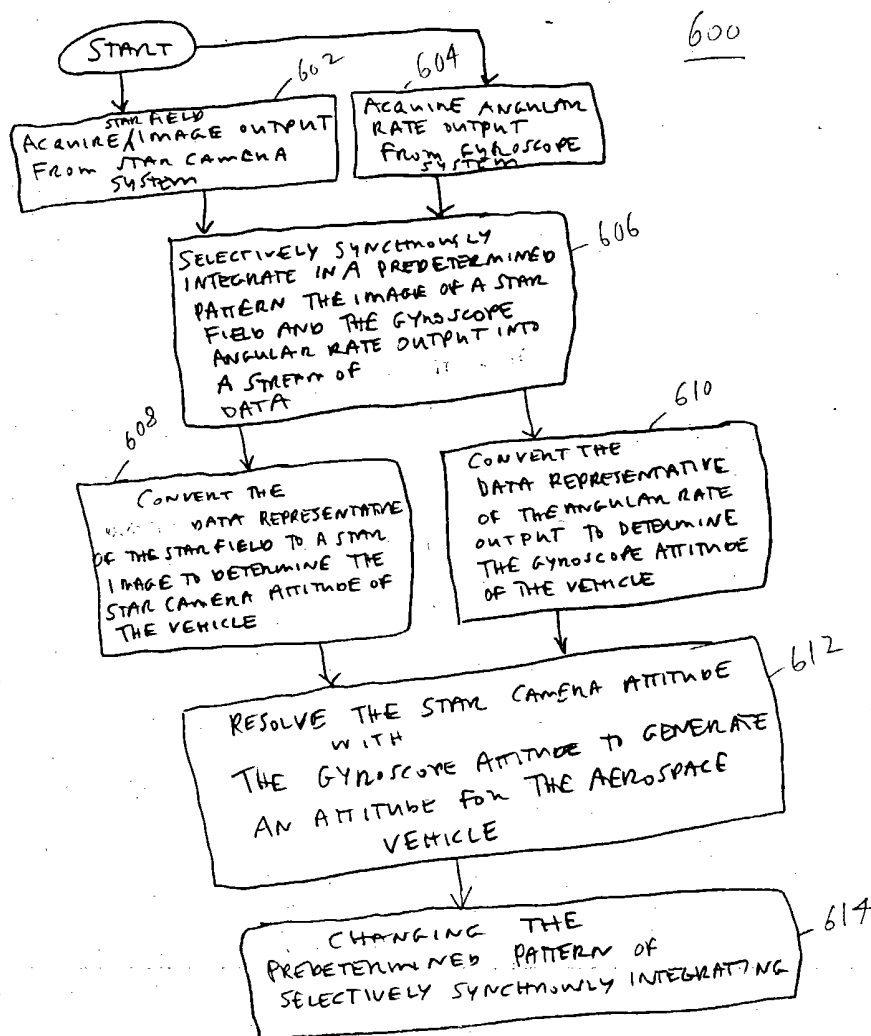 600
START
602
604
STAR FIELD
ACQUIRE IMAGE OUTPUT
FROM STAR CAMERA
SYSTEM
ACQUIRE ANGULAR
RATE OUTPUT
FROM GYROSCOPE
SYSTEM
606
SELECTIVELY SYNCHNOUSLY
INTEGRATE IN A PREDETERMINED
PATTERN THE IMAGE OF A STAR
FIELD AND THE GYROSCOPE
ANGULAR RATE OUTPUT INTO
A STREAM OF
DATA
608
CONVERT THE
DATA REPRESENTATIVE
OF THE STAR FIELD TO A STAR
IMAGE TO DETERMINE THE
STAR CAMERA ATTITUDE OF
THE VEHICLE
610
CONVERT THE
DATA REPRESENTATIVE
OF THE ANGULAR RATE
OUTPUT TO DETERMINE
THE GYROSCOPE ATTITUDE
OF THE VEHICLE
612
RESOLVE THE STAR CAMERA ATTITUDE
WITH
THE GYROSCOPE ATTITUDE TO GENERATE
AN ATTITUDE FOR THE AEROSPACE
VEHICLE
614
CHANGING THE
PREDETERMINED PATTERN OF
SELECTIVELY SYNCHNOUSLY INTEGRATING